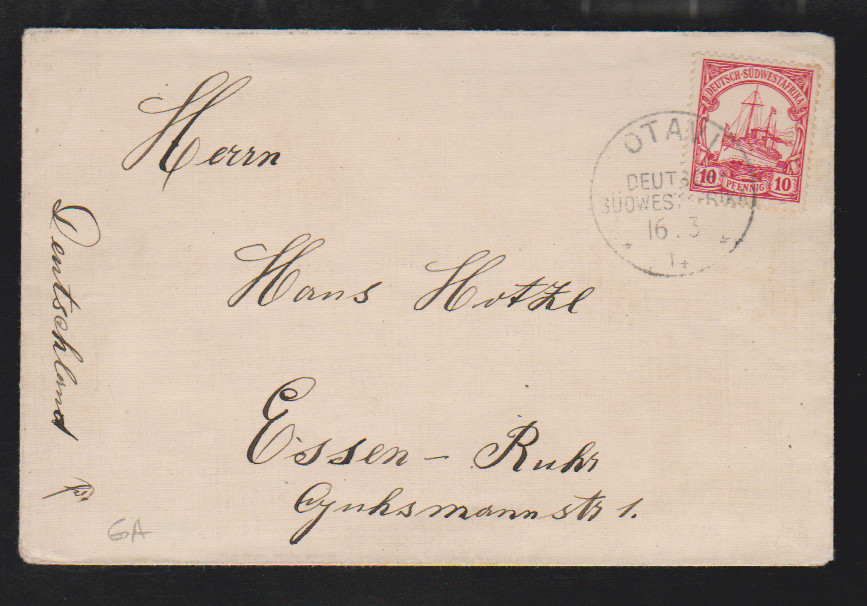 DEUTSCH-SÜDWESTAFRIKA
10 PFENNIG 10
OTAVI
DEUTSCH
SÜDWESTAFRIKA
16.3
14
Herrn
Hans Hotzl
Essen - Ruhr
str 1.
Deutschland
GA